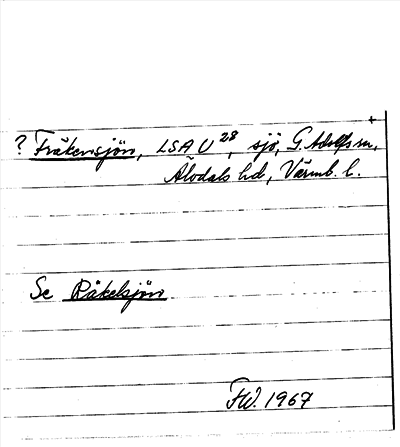 ? Fräkensjön, LSA U 28, sjö, G. Adolfs sn,
Älvdals hd, Värml. l.
Se Räkelsjön
FW. 1967